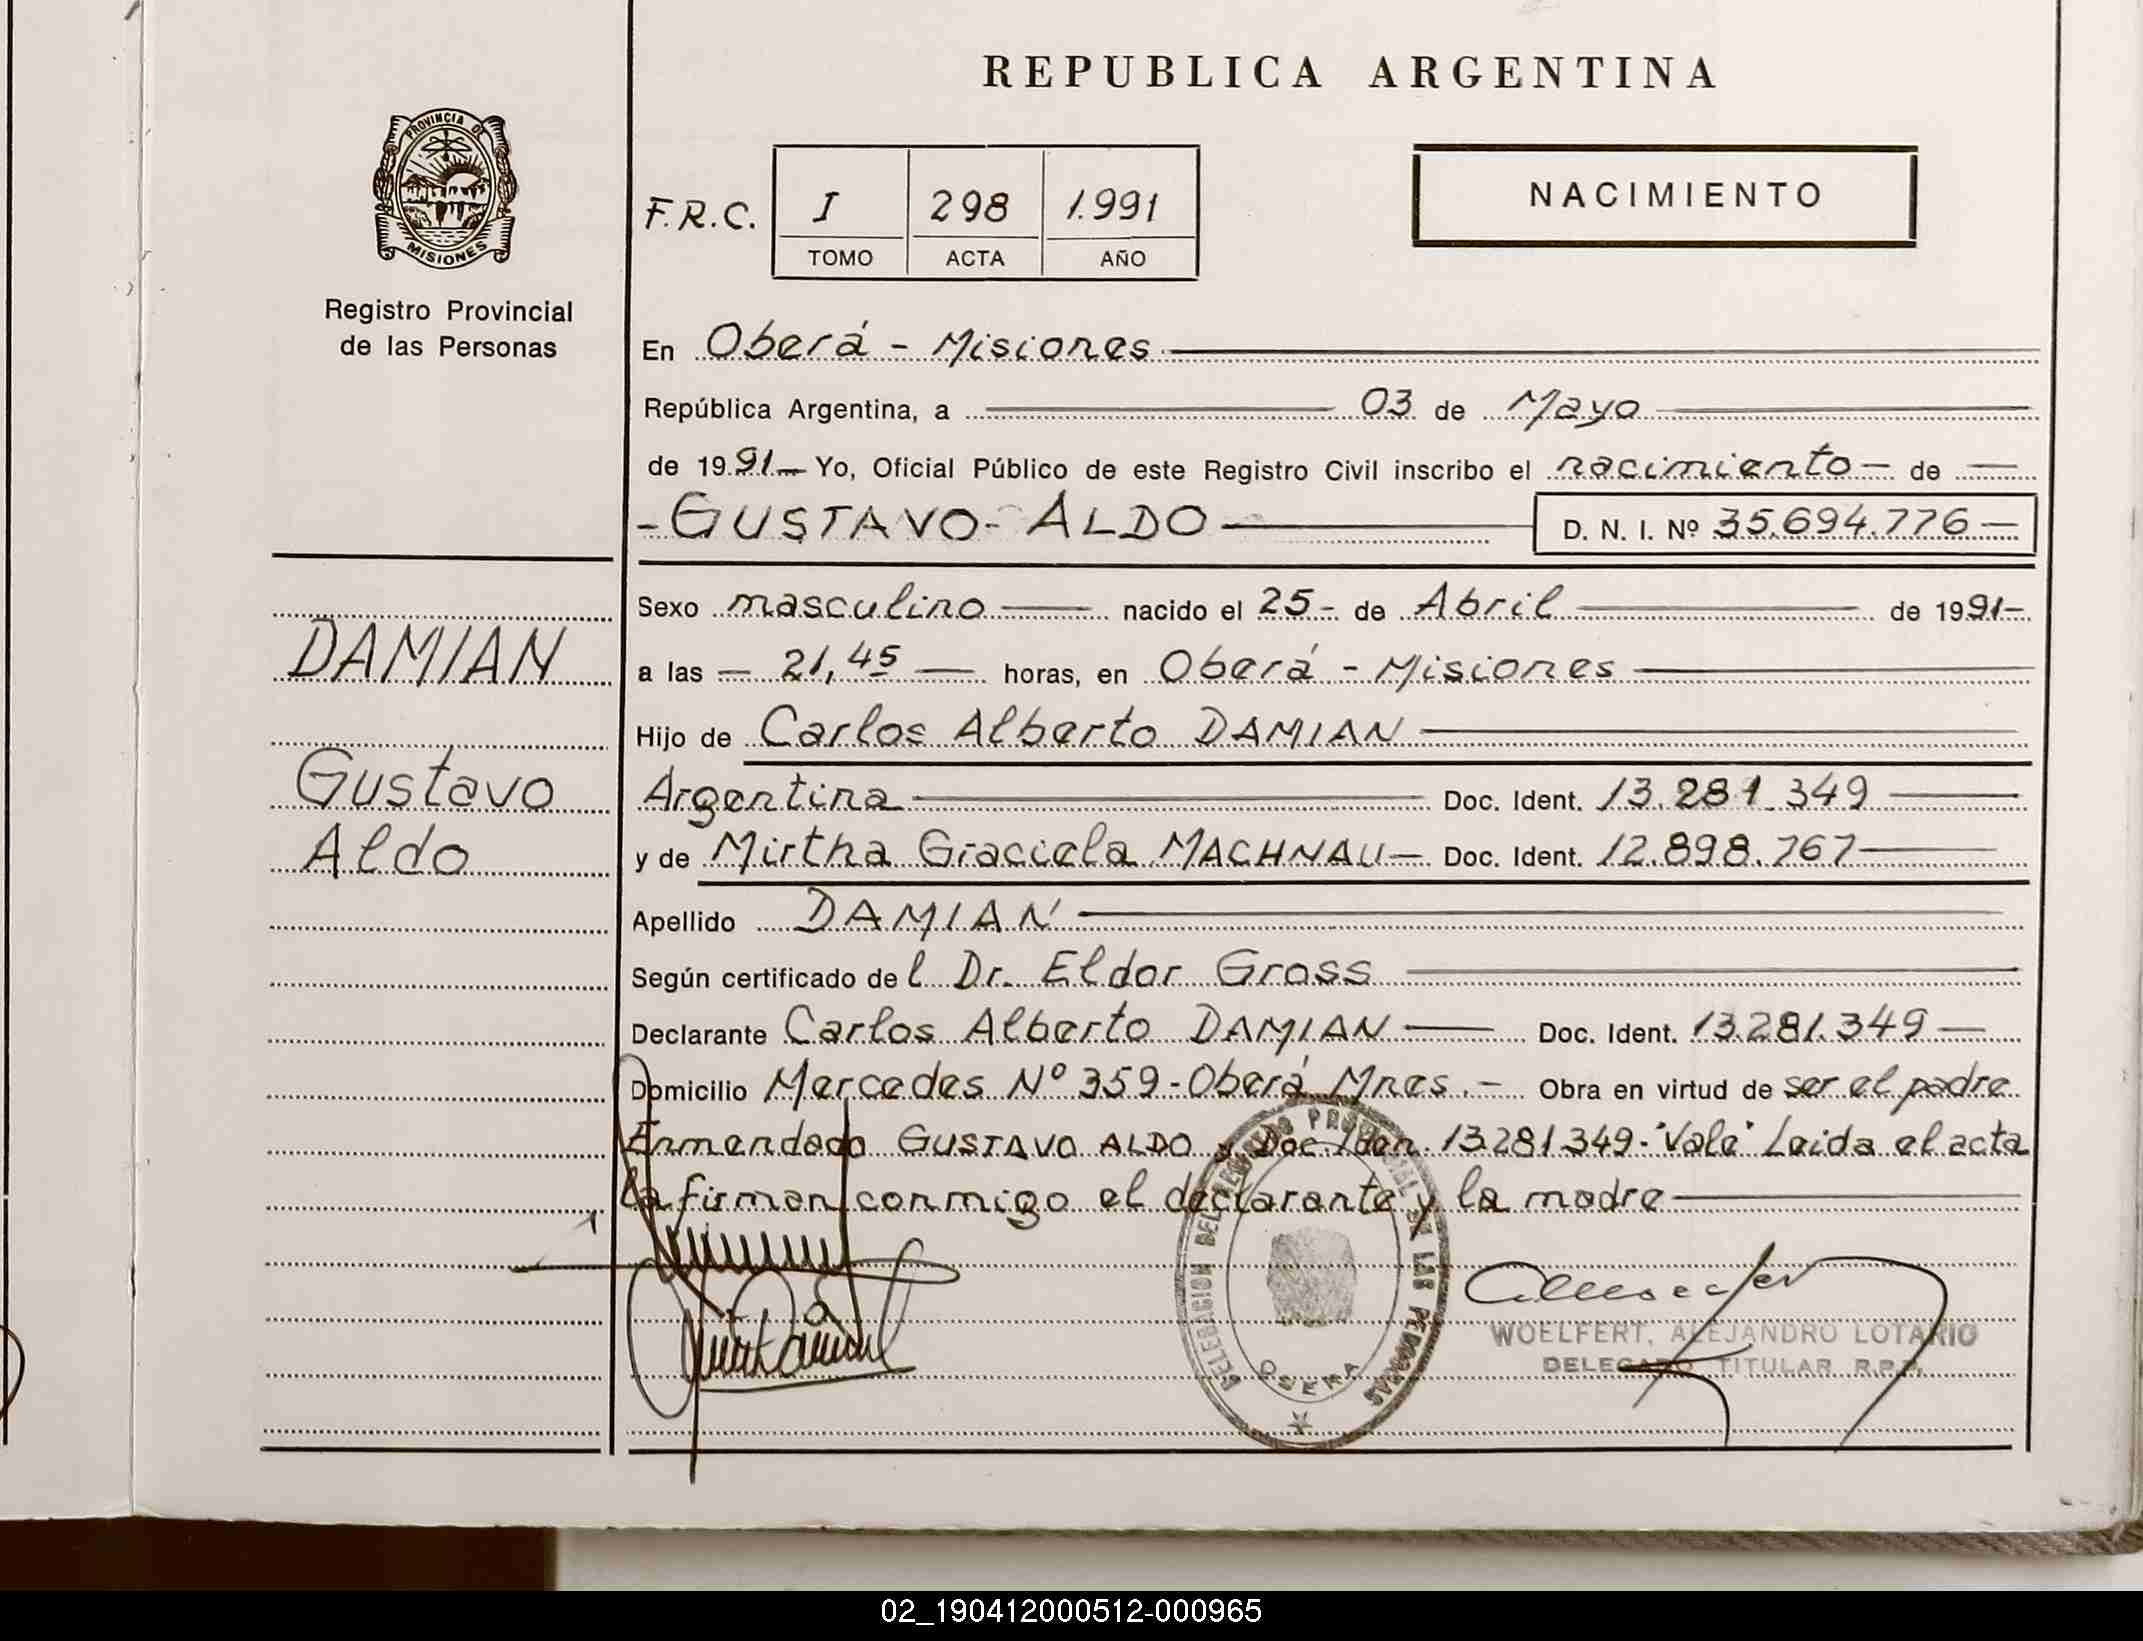 REPUBLICA ARGENTINA
PROVINCIA DE
MISIONES
Registro Provincial
de las Personas
F.R.C. I 298 1.991
TOMO ACTA AÑO
NACIMIENTO
En Oberá - Misiones
República Argentina, a 03 de Mayo
de 1991 Yo, Oficial Público de este Registro Civil inscribo el nacimiento de
-GUSTAVO- ALDO D. N. I. Nº 35.694.776
DAMIAN
Gustavo
Aldo
Sexo masculino nacido el 25 de Abril de 1991
a las 21,45 horas, en Oberá - Misiones
Hijo de Carlos Alberto DAMIAN
Argentina Doc. Ident. 13.281.349
y de Mirtha Graciela MACHNAU Doc. Ident. 12.898.767
Apellido DAMIAN
Según certificado del Dr. Eldor Gross
Declarante Carlos Alberto DAMIAN Doc. Ident. 13.281.349
Domicilio Mercedes Nº 359-Oberá Mnes. Obra en virtud de ser el padre
Enmendado GUSTAVO ALDO y Doc. Iden. 13281349-"Vale" Leida el acta
la firman conmigo el declarante y la madre
DELEGACION DEL REGISTRO PROVINCIAL DE LAS PERSONAS
OBERA
WOELFERT, ALEJANDRO LOTARIO
DELEGADO TITULAR R.P.P.
02_190412000512-000965